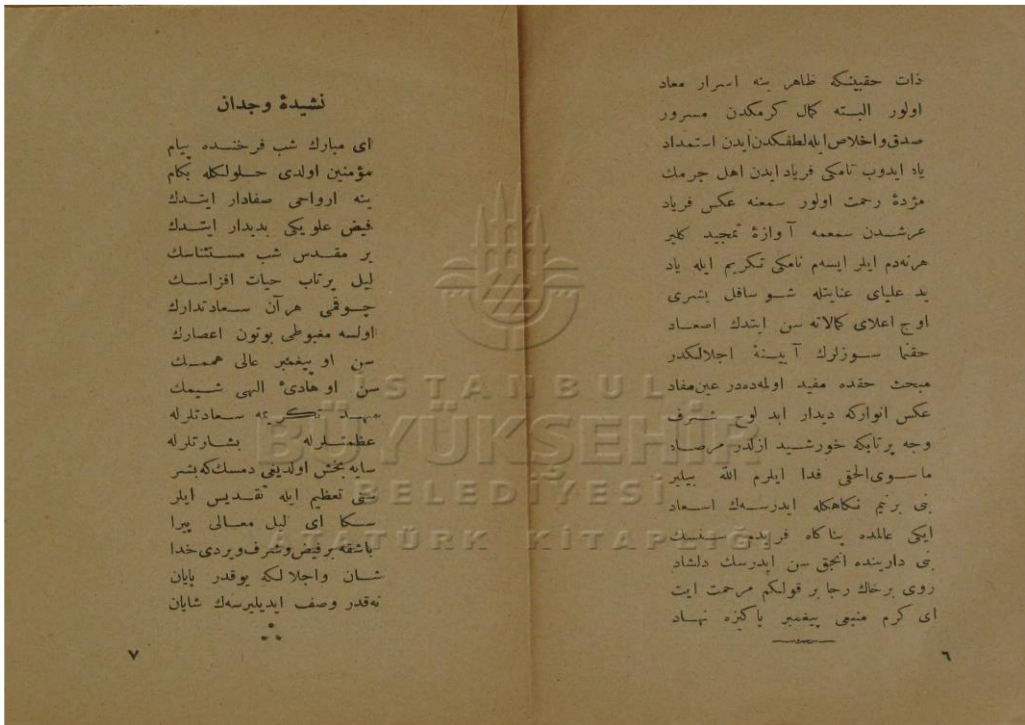 ذات حقبینكه ظاهر ینه اسرار معاد
اولور البته كمال كرمكدن مسرور
صدق واخلاص ایله لطفكدن ایدن استمداد
یاد ایدوب نامكی فریاد ایدن اهل جرمك
مژدهٔ رحمت اولور سمعنه عكس فریاد
عرشدن سمعمه آوازهٔ تمجید كلیر
هر نه دم ایلر ایسه م نامكی تكریم ایله یاد
ید علیای عنایتله شو سافل بشری
اوج اعلای كمالاته سن ایتدك اصعاد
حقنما سوزلرك آیینهٔ اجلالكدر
مبحث حقده مفید اولمه ده در عین مفاد
عكس انواركه دیدار ابد لوح شرف
وجه پرتابكه خورشید ازلدر مرصاد
ماسوی الحقی فدا ایلرم الله بیلیر
بنی برنیم نكاهكله ایدرسه ك اسعاد
ایكی عالمده پناكاه فریدم سنسك
بنی دارینده انجق سن ایدرسك دلشاد
روی برخاك رجا بر قولكم مرحمت ایت
ای كرم منبعی پیغمبر پاكیزه نهاد
٦
نشیدهٔ وجدان
ای مبارك شب فرخنده پیام
مؤمنین اولدی حلولكله بكام
ینه ارواحی صفادار ایتدك
فیض علویكی بدیدار ایتدك
بر مقدس شب مستثناسك
لیل پرتاب حیات افزاسك
چوقمی هر آن سعادتدارك
اولسه مغبوطی بوتون اعصارك
سن او پیغمبر عالی هممك
سن او هادئ الهی شیمك
مهد تكریمه سعادتلرله
عظمتلرله بشارتلرله
سایه بخش اولدیغی دمسك كه بشر
سنی تعظیم ایله تقدیس ایلر
سكا ای لیل معالی پیرا
باشقه بر فیض وشرف ویردی خدا
شان واجلالكه یوقدر پایان
نه قدر وصف ایدیلیرسه ك شایان
٧
ISTANBUL
BÜYÜKŞEHİR
BELEDİYESİ
ATATÜRK KİTAPLIĞI